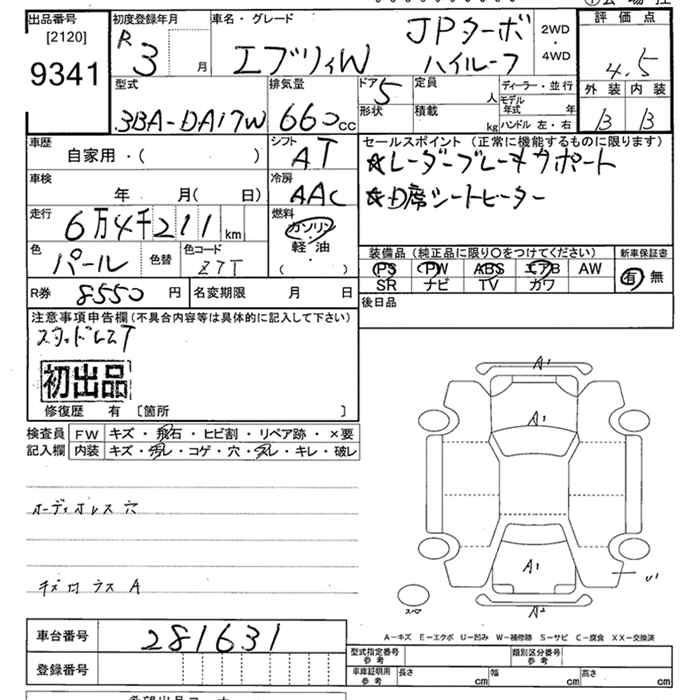 出品番号 初度登録年月 車名・グレード JPターボ 2WD 評価点
[2120] R 3 月 エブリィW ハイルーフ 4WD 4.5
9341 型式 排気量 ドア 5 定員 人 ディーラー・並行 外装 内装
3BA-DA17W 660cc 形状 積載 kg モデル年式 年 B B
ハンドル 左・右
車歴 自家用・( ) シフト AT セールスポイント (正常に機能するものに限ります)
☆レーダーブレーキサポート
車検 年 月( 日) 冷房 AAC ☆D席シートヒーター
走行 6万4千211km 燃料 ガソリン
軽・油
( )
色 パール 色替 色コード Z7T 装備品 (純正品に限り○をつけてください) 新車保証書
PS PW ABS エアB AW 有 無
SR ナビ TV カワ
R券 8550円 名変期限 月 日 後日品
注意事項申告欄(不具合内容等は具体的に記入して下さい)
スタッドレスT
初出品
修復歴 有 [箇所 ]
検査員 FW キズ・飛石・ヒビ割・リペア跡・×要
記入欄 内装 キズ・汚レ・コゲ・穴・スレ・キレ・破レ
オーディオレス 穴
A1
A1
A1
U1
スペア
A2
A-キズ E-エクボ U-凹み W-補修跡 S-サビ C-腐食 XX-交換済
車台番号 281631
型式指定番号 参考 類別区分番号 参考
登録番号 車庫証明用 参考 長さ cm 幅 cm 高さ cm